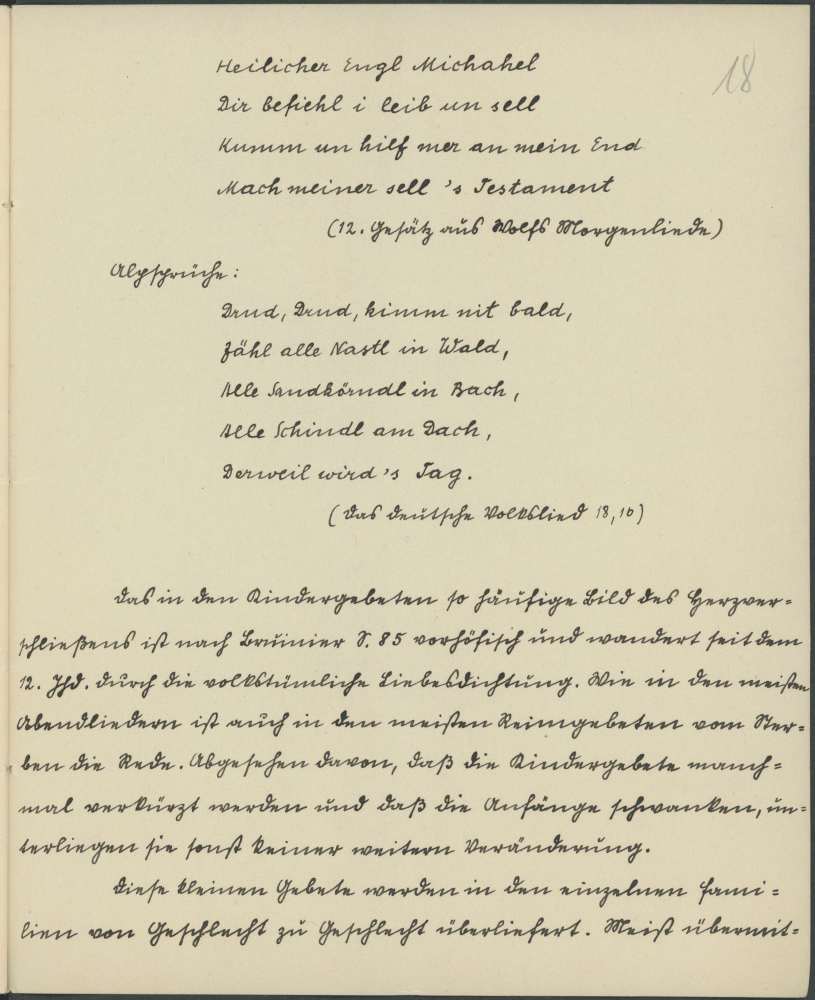 18
Heilicher Engl Michahel
Dir befiehl i leib un sell
Kumm un hilf mer an mein End
Mach meiner sell 's Testament
(12. Gesätz aus Wolfs Morgenliede)
Alpsprüche:
Drud, Drud, kimm nit bald,
Zähl alle Nastl in Wald,
Alle Sandkörndl in Bach,
Alle Schindl am Dach,
Derweil wird's Tag.
(Das deutsche Volkslied 18, 10)
Das in den Kindergebeten so häufige Bild des Herzver-
schließens ist nach Bruinier S. 85 vorhöfisch und wandert seit dem
12. Jhd. durch die volkstümliche Liebesdichtung. Wie in den meisten
Abendliedern ist auch in den meisten Reimgebeten vom Ster-
ben die Rede. Abgesehen davon, daß die Kindergebete manch-
mal verkürzt werden und daß die Anfänge schwanken, un-
terliegen sie sonst keiner weitern Veränderung.
Diese kleinen Gebete werden in den einzelnen Fami-
lien von Geschlecht zu Geschlecht überliefert. Meist übermit-